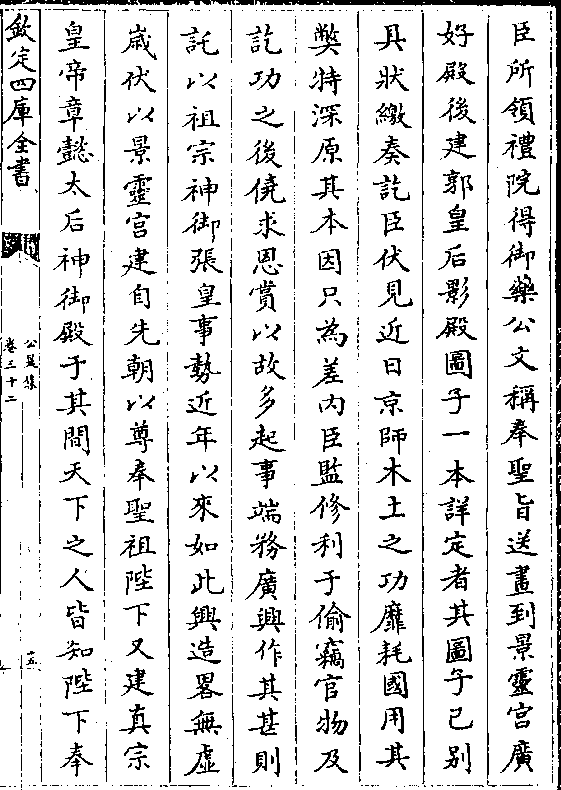 臣所領禮院得御藥公文稱奉聖旨送畫到景靈宮廣
好殿後建郭皇后影殿圖子一本詳定者其圖子已别
具狀繳奏訖臣伏見近日京師木土之功靡耗國用其
獘特深原其本因只為差内臣監修利于偷竊官物及
訖功之後僥求恩賞以故多起事端務廣興作其甚則
託以祖宗神御張皇事勢近年以來如此興造畧無虚
嵗伏以景靈宮建自先朝以尊奉聖祖陛下又建真宗
皇帝章懿太后神御殿于其間天下之人皆知陛下奉
欽定四庫全書
公是集
卷三十二
十五